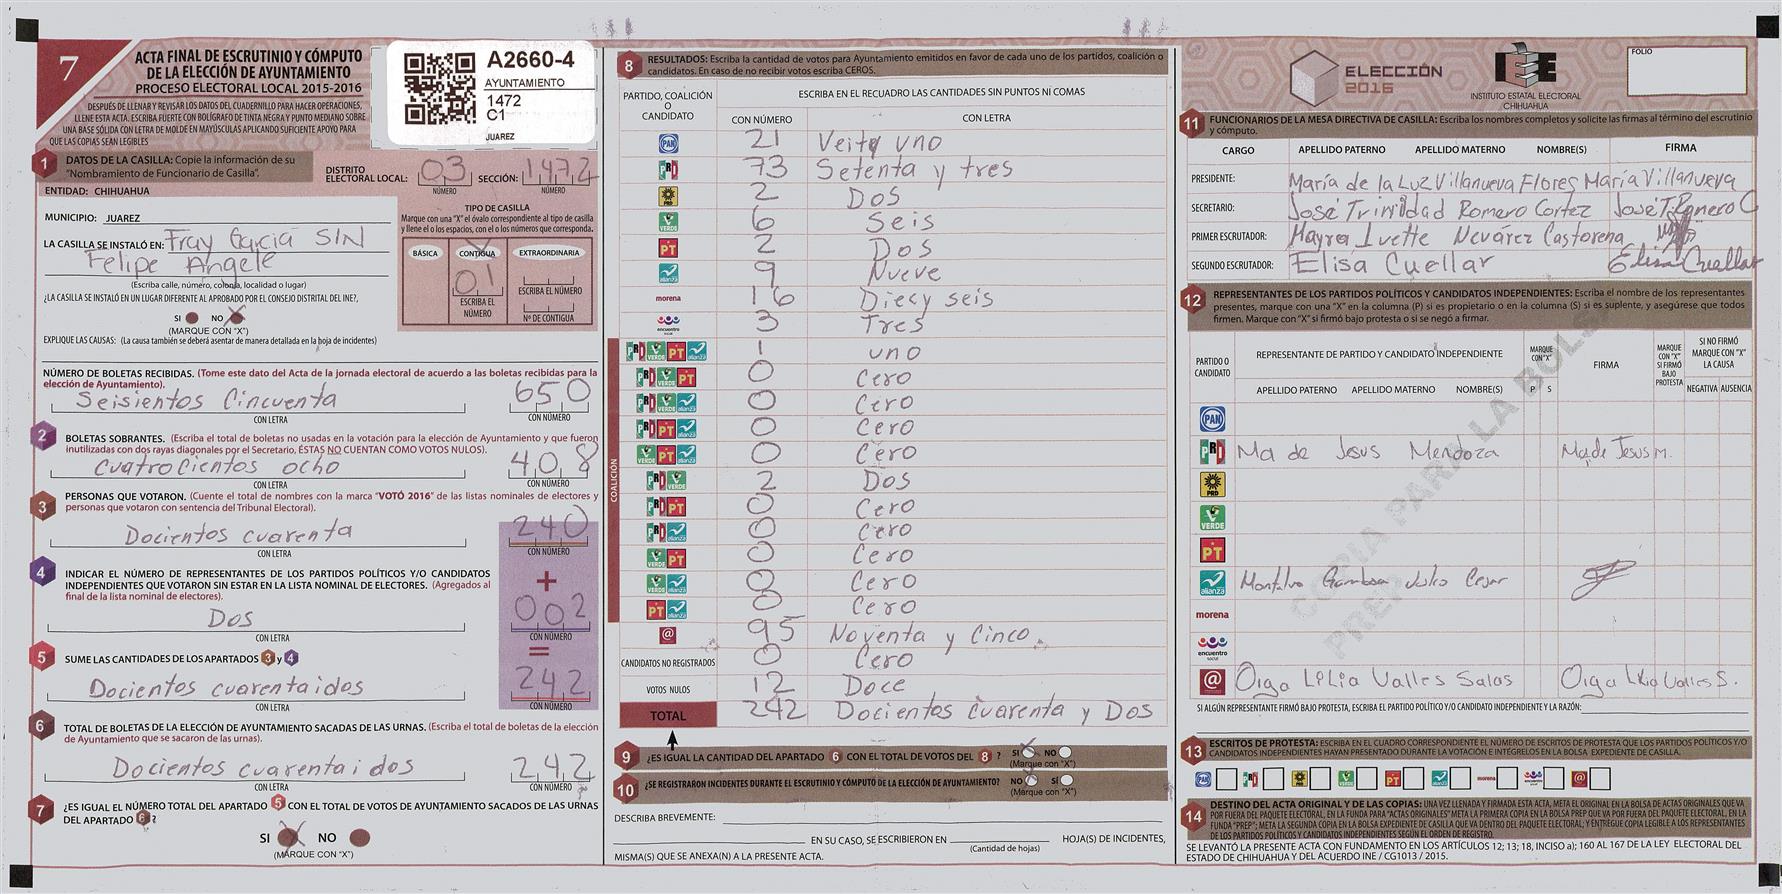 7
ACTA FINAL DE ESCRUTINIO Y CÓMPUTO
DE LA ELECCIÓN DE AYUNTAMIENTO
PROCESO ELECTORAL LOCAL 2015-2016
DESPUÉS DE LLENAR Y REVISAR LOS DATOS DEL CUADERNILLO PARA HACER OPERACIONES,
LLENE ESTA ACTA. ESCRIBA FUERTE CON BOLÍGRAFO DE TINTA NEGRA Y PUNTO MEDIANO SOBRE
UNA BASE SÓLIDA CON LETRA DE MOLDE EN MAYÚSCULAS APLICANDO SUFICIENTE APOYO PARA
QUE LAS COPIAS SEAN LEGIBLES
A2660-4
AYUNTAMIENTO
1472
C1
JUAREZ
1 DATOS DE LA CASILLA: Copie la información de su
"Nombramiento de Funcionario de Casilla".
DISTRITO ELECTORAL LOCAL: 03 SECCIÓN: 1472
NÚMERO NÚMERO
ENTIDAD: CHIHUAHUA
MUNICIPIO: JUAREZ
LA CASILLA SE INSTALÓ EN: Fray Garcia SIN
Felipe Angele
(Escriba calle, número, colonia, localidad o lugar)
¿LA CASILLA SE INSTALÓ EN UN LUGAR DIFERENTE AL APROBADO POR EL CONSEJO DISTRITAL DEL INE?,
SI NO X
(MARQUE CON "X")
EXPLIQUE LAS CAUSAS: (La causa también se deberá asentar de manera detallada en la hoja de incidentes)
TIPO DE CASILLA
Marque con una "X" el óvalo correspondiente al tipo de casilla
y llene el o los espacios, con el o los números que corresponda.
BÁSICA CONTIGUA EXTRAORDINARIA
01
ESCRIBA EL NÚMERO
ESCRIBA EL NÚMERO
Nº DE CONTIGUA
NÚMERO DE BOLETAS RECIBIDAS. (Tome este dato del Acta de la jornada electoral de acuerdo a las boletas recibidas para la
elección de Ayuntamiento).
Seisientos Cincuenta 650
CON LETRA CON NÚMERO
2 BOLETAS SOBRANTES. (Escriba el total de boletas no usadas en la votación para la elección de Ayuntamiento y que fueron
inutilizadas con dos rayas diagonales por el Secretario, ÉSTAS NO CUENTAN COMO VOTOS NULOS).
Cuatrocientos ocho 408
CON LETRA CON NÚMERO
3 PERSONAS QUE VOTARON. (Cuente el total de nombres con la marca "VOTÓ 2016" de las listas nominales de electores y
personas que votaron con sentencia del Tribunal Electoral).
Docientos cuarenta 240
CON LETRA CON NÚMERO
4 INDICAR EL NÚMERO DE REPRESENTANTES DE LOS PARTIDOS POLÍTICOS Y/O CANDIDATOS
INDEPENDIENTES QUE VOTARON SIN ESTAR EN LA LISTA NOMINAL DE ELECTORES. (Agregados al
final de la lista nominal de electores).
+
Dos 002
CON LETRA CON NÚMERO
5 SUME LAS CANTIDADES DE LOS APARTADOS 3 y 4
=
Docientos cuarentaidos 242
CON LETRA CON NÚMERO
6 TOTAL DE BOLETAS DE LA ELECCIÓN DE AYUNTAMIENTO SACADAS DE LAS URNAS. (Escriba el total de boletas de la elección
de Ayuntamiento que se sacaron de las urnas).
Docientos cuarentaidos 242
CON LETRA CON NÚMERO
7 ¿ES IGUAL EL NÚMERO TOTAL DEL APARTADO 5 CON EL TOTAL DE VOTOS DE AYUNTAMIENTO SACADOS DE LAS URNAS
DEL APARTADO 6?
SI X NO
(MARQUE CON "X")
8 RESULTADOS: Escriba la cantidad de votos para Ayuntamiento emitidos en favor de cada uno de los partidos, coalición o
candidatos. En caso de no recibir votos escriba CEROS.
PARTIDO, COALICIÓN O CANDIDATO
ESCRIBA EN EL RECUADRO LAS CANTIDADES SIN PUNTOS NI COMAS
CON NÚMERO CON LETRA
PAN 21 Veity uno
PRI 73 Setenta y tres
PRD 2 Dos
VERDE 6 Seis
PT 2 Dos
alianza 9 Nueve
morena 16 Diecy seis
encuentro social 3 Tres
COALICIÓN
PRI VERDE PT alianza 1 uno
PRI VERDE PT 0 Cero
PRI VERDE alianza 0 Cero
PRI PT alianza 0 Cero
VERDE PT alianza 0 Cero
PRI VERDE 2 Dos
PRI PT 0 Cero
PRI alianza 0 Cero
VERDE PT 0 Cero
VERDE alianza 0 Cero
PT alianza 0 Cero
@ 95 Noventa y Cinco
CANDIDATOS NO REGISTRADOS 0 Cero
VOTOS NULOS 12 Doce
TOTAL 242 Docientos Cuarenta y Dos
9 ¿ES IGUAL LA CANTIDAD DEL APARTADO 6 CON EL TOTAL DE VOTOS DEL 8? SI X NO
(Marque con "X")
10 ¿SE REGISTRARON INCIDENTES DURANTE EL ESCRUTINIO Y CÓMPUTO DE LA ELECCIÓN DE AYUNTAMIENTO? NO X SÍ
(Marque con "X")
DESCRIBA BREVEMENTE:
EN SU CASO, SE ESCRIBIERON EN HOJA(S) DE INCIDENTES,
(Cantidad de hojas)
MISMA(S) QUE SE ANEXA(N) A LA PRESENTE ACTA.
ELECCIÓN
2016
IEE
INSTITUTO ESTATAL ELECTORAL
CHIHUAHUA
FOLIO
11 FUNCIONARIOS DE LA MESA DIRECTIVA DE CASILLA: Escriba los nombres completos y solicite las firmas al término del escrutinio
y cómputo.
CARGO APELLIDO PATERNO APELLIDO MATERNO NOMBRE(S) FIRMA
PRESIDENTE: María de la Luz Villanueva Flores María Villanueva
SECRETARIO: José Trinidad Romero Cortez José T. Romero C
PRIMER ESCRUTADOR: Mayra Ivette Nevárez Castorena
SEGUNDO ESCRUTADOR: Elisa Cuellar Elisa Cuellar
12 REPRESENTANTES DE LOS PARTIDOS POLÍTICOS Y CANDIDATOS INDEPENDIENTES: Escriba el nombre de los representantes
presentes, marque con "X" en la columna (P) si es propietario o en la columna (S) si es suplente, y asegúrese que todos
firmen. Marque con "X" si firmó bajo protesta o si se negó a firmar.
PARTIDO O CANDIDATO
REPRESENTANTE DE PARTIDO Y CANDIDATO INDEPENDIENTE
MARQUE CON "X"
FIRMA
MARQUE CON "X" SI FIRMÓ BAJO PROTESTA
SI NO FIRMÓ MARQUE CON "X" LA CAUSA
APELLIDO PATERNO APELLIDO MATERNO NOMBRE(S) P S NEGATIVA AUSENCIA
PAN
PRI Ma de Jesus Mendoza Ma.de Jesus M.
PRD
VERDE
PT
alianza Montalvo Gamboa Julio Cesar
morena
encuentro social
@ Olga Lilia Valles Salas Olga Lilia Valles S.
COPIA PARA LA BOLSA
PREP
SI ALGÚN REPRESENTANTE FIRMÓ BAJO PROTESTA, ESCRIBA EL PARTIDO POLÍTICO Y/O CANDIDATO INDEPENDIENTE Y LA RAZÓN:
13 ESCRITOS DE PROTESTA: ESCRIBA EN EL CUADRO CORRESPONDIENTE EL NÚMERO DE ESCRITOS DE PROTESTA QUE LOS PARTIDOS POLÍTICOS Y/O
CANDIDATOS INDEPENDIENTES HAYAN PRESENTADO DURANTE LA VOTACIÓN E INTÉGRELOS EN LA BOLSA EXPEDIENTE DE CASILLA.
PAN PRI PRD VERDE PT alianza morena encuentro social @
14 DESTINO DEL ACTA ORIGINAL Y DE LAS COPIAS: UNA VEZ LLENADA Y FIRMADA ESTA ACTA, META EL ORIGINAL EN LA BOLSA DE ACTAS ORIGINALES QUE VA
POR FUERA DEL PAQUETE ELECTORAL, EN LA FUNDA PARA "ACTAS ORIGINALES" META LA PRIMERA COPIA EN LA BOLSA PREP QUE VA POR FUERA DEL PAQUETE ELECTORAL, EN LA
FUNDA "PREP"; META LA SEGUNDA COPIA EN LA BOLSA EXPEDIENTE DE CASILLA QUE VA DENTRO DEL PAQUETE ELECTORAL; Y ENTREGUE COPIA LEGIBLE A LOS REPRESENTANTES
DE LOS PARTIDOS POLÍTICOS Y CANDIDATOS INDEPENDIENTES SEGÚN EL ORDEN DE REGISTRO.
SE LEVANTÓ LA PRESENTE ACTA CON FUNDAMENTO EN LOS ARTÍCULOS 12; 13; 18, INCISO a); 160 AL 167 DE LA LEY ELECTORAL DEL
ESTADO DE CHIHUAHUA Y DEL ACUERDO INE / CG1013 / 2015.